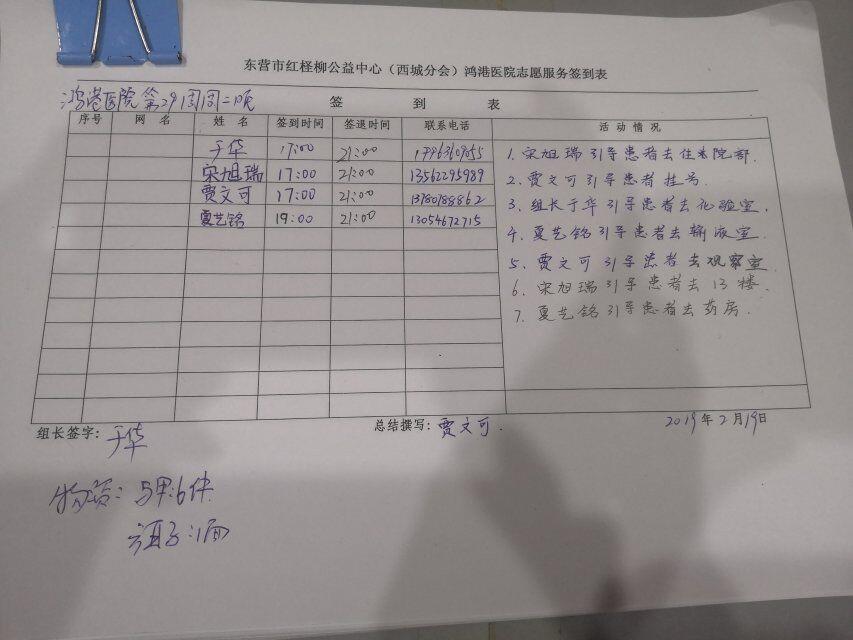 东营市红柽柳公益中心（西城分会）鸿港医院志愿服务签到表
鸿港医院第29周周二晚
签 到 表
序号 网 名 姓 名 签到时间 签退时间 联系电话 活 动 情 况
于华 17:00 21:00
宋旭瑞 17:00 21:00 13562295989
贾文可 17:00 21:00 13780788862
夏艺铭 19:00 21:00 13054672715
1. 宋旭瑞引导患者去住院部.
2. 贾文可引导患者挂号
3. 组长于华引导患者去化验室.
4. 夏艺铭引导患者去输液室.
5. 贾文可引导患者去观察室
6. 宋旭瑞引导患者去13楼.
7. 夏艺铭引导患者去药房.
组长签字: 于华 总结撰写: 贾文可. 2019年2月19日
物资: 马甲:6件
:1面